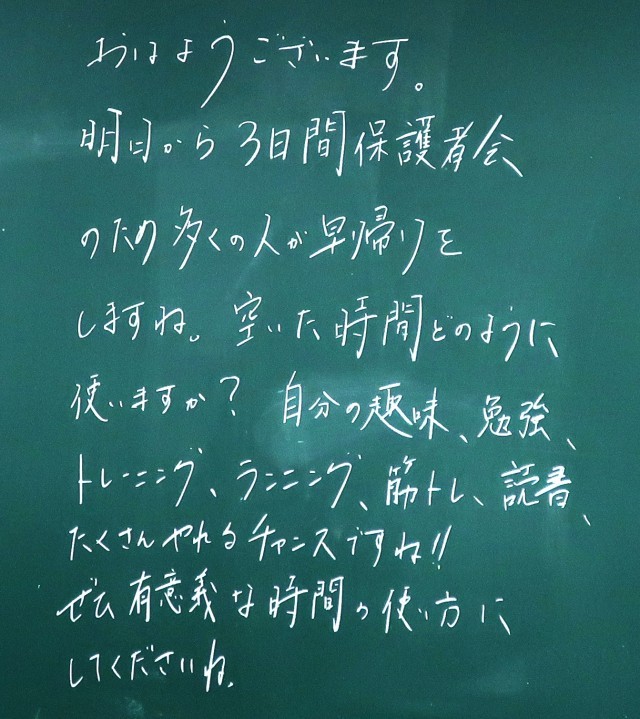 おはようございます。
明日から3日間保護者会
のため多くの人が早帰りを
しますね。空いた時間どのように
使いますか？ 自分の趣味、勉強、
トレーニング、ランニング、筋トレ、読書、
たくさんやれるチャンスですね!!
ぜひ有意義な時間の使い方に
してくださいね。